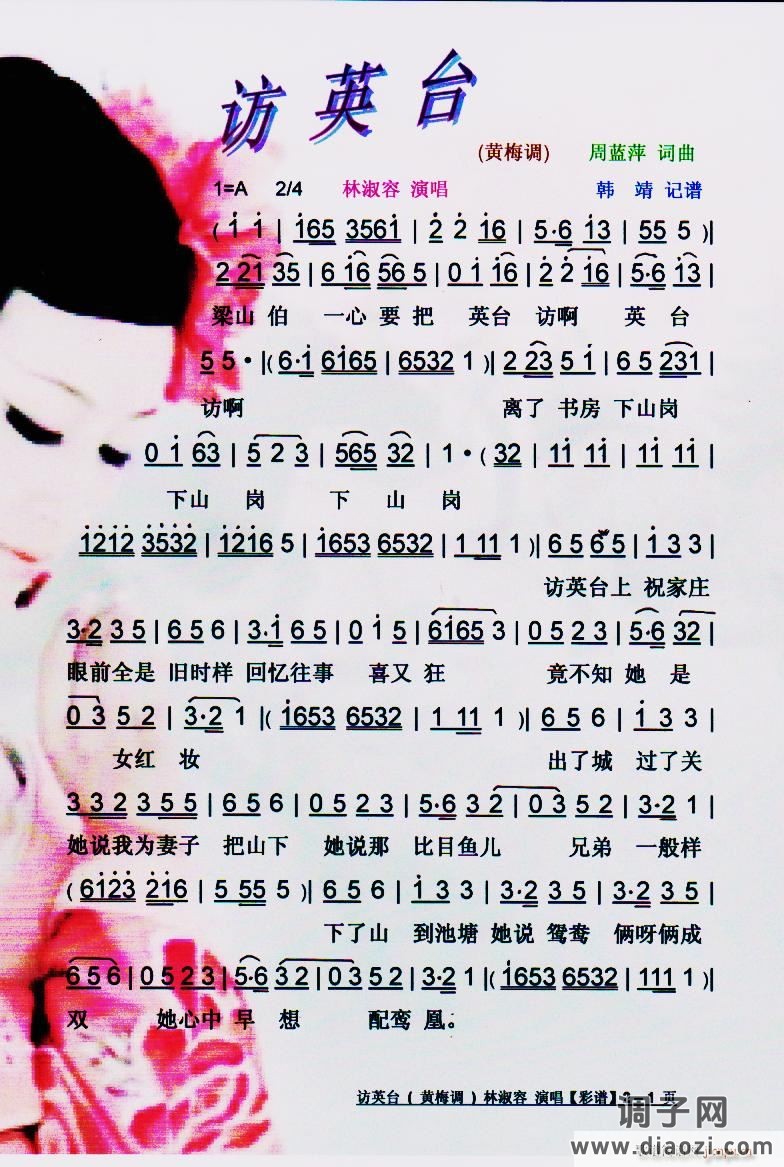 访英台
(黄梅调) 周蓝萍 词曲
1=A 2/4 林淑容 演唱 韩 靖 记谱
( 1 1 | 165 3561 | 2 2 16 | 5·6 13 | 55 5 )|
2 21 35 | 6 16 56 5 | 0 1 2 | 2 2 16 | 5·6 13 |
梁山 伯 一心 要 把 英台 访啊 英 台
5 5 · |( 6·1 6165 | 6532 1 )| 2 23 5 1 | 6 5 231 |
访啊 离了 书房 下山岗
0 1 63 | 5 2 3 | 565 32 | 1 · ( 32 | 11 11 | 11 11 |
下山 岗 下 山 岗
1212 3532 | 1216 5 | 1653 6532 | 1 11 1 )| 6 5 6 5 | 1 3 3 |
访英台上 祝家庄
3·2 3 5 | 6 5 6 | 3·1 6 5 | 0 1 5 | 6165 3 | 0 5 2 3 | 5·6 32 |
眼前全是 旧时样 回忆往事 喜又 狂 竟不知 她 是
0 3 5 2 | 3·2 1 |( 1653 6532 | 1 11 1 )| 6 5 6 | 1 3 3 |
女红 妆 出了城 过了关
3 3 2 3 5 5 | 6 5 6 | 0 5 2 3 | 5·6 3 2 | 0 3 5 2 | 3·2 1 |
她说我为妻子 把山下 她说那 比目鱼儿 兄弟 一般样
( 6123 216 | 5 55 5 )| 6 5 6 | 1 3 3 | 3·2 3 5 | 3·2 3 5 |
下了山 到池塘 她说 鸳鸯 俩呀俩成
6 5 6 | 0 5 2 3 | 5·6 3 2 | 0 3 5 2 | 3·2 1 |( 1653 6532 | 111 1 )|
双 她心中 早 想 配鸾 凰。
访英台 ( 黄梅调 ) 林淑容 演唱【彩谱】 1 页
调子网
www.diaozi.com